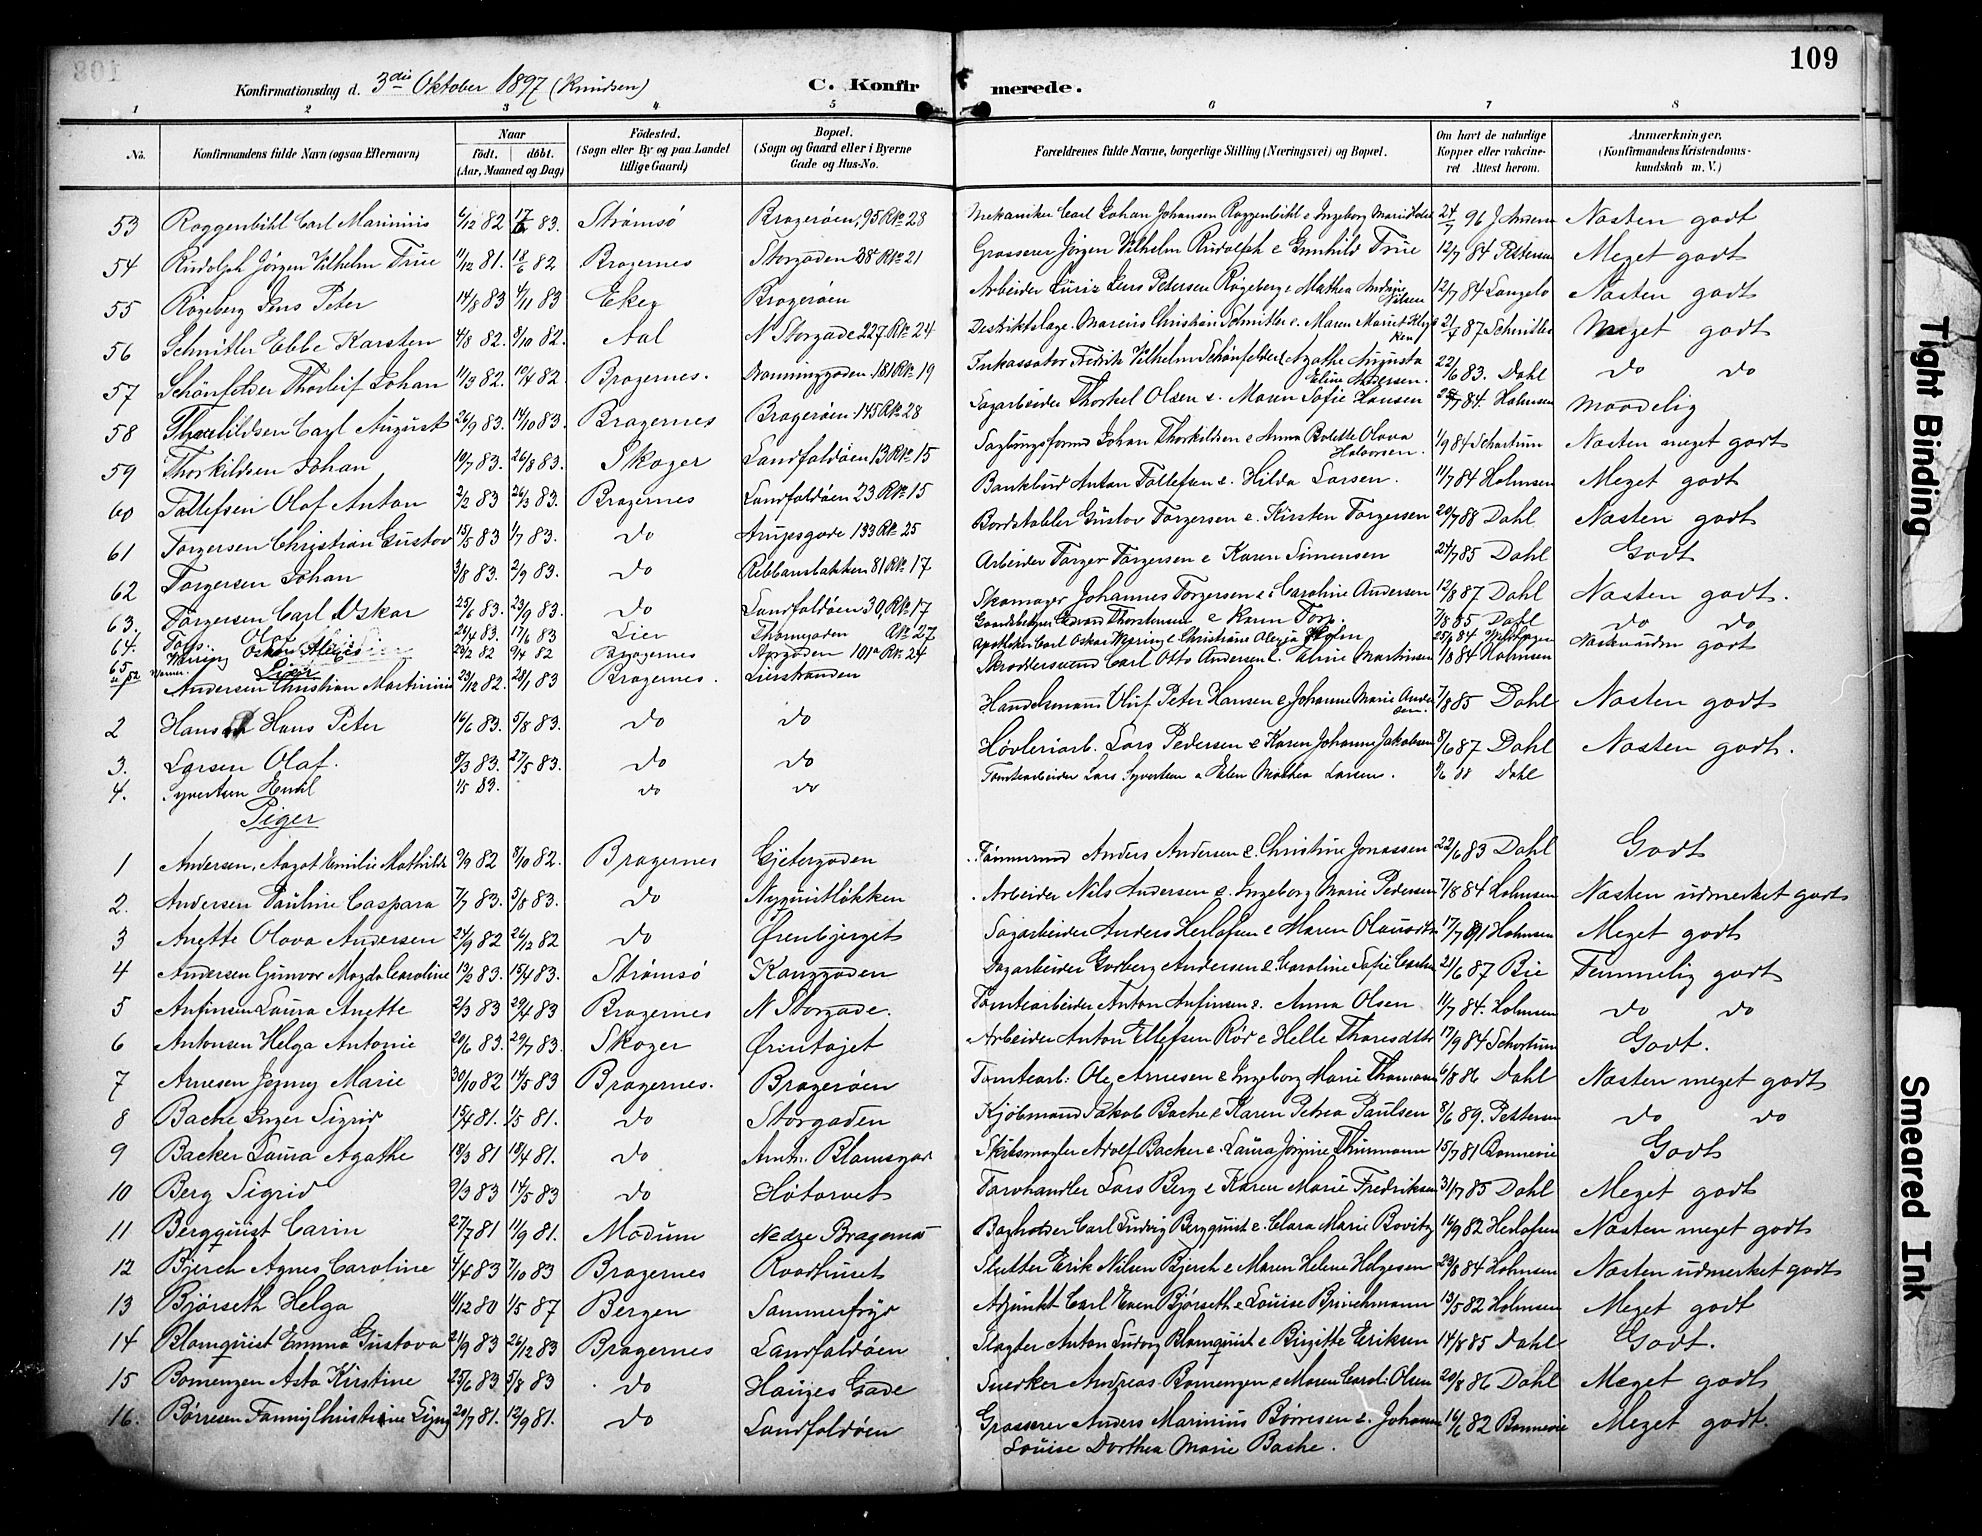 109
Konfirmationsdag d. 3die Oktober 1897 (Knudsen) C. Konfirmerede.
1 2 3 4 5 6 7 8
No. Konfirmandens fulde Navn (ogsaa Efternavn) Naar født. døbt. (Aar, Maaned og Dag) Fødested. (Sogn eller By og paa Landet tillige Gaard) Bopæl. (Sogn og Gaard eller i Byerne Gade og Hus-No. Forældrenes fulde Navne, borgerlige Stilling (Næringsvei) og Bopæl. Om havt de naturlige Kopper eller vakcineret Attest herom. Anmærkninger. (Konfirmandens Kristendomskundskab m. V.)
53 Roggenbihl Carl Marinius 6/12 82 83. Strømsø Bragerøen, 95 Rk 28 Mekaniker Carl Johan Johansen Roggenbihl e Ingeborg 24/7 96 Næsten godt
54 Rudolph Jørgen Vilhelm True 11/12 81. 18/6 82 Bragernes Storgaden 38 Rk 21 Grosserer Jørgen Vilhelm Rudolph e Gunhild True 12/7 84 Pettersen Meget godt
55 Røgeberg Jens Peter 14/8 83 4/11 83 Eker Bragerøen Arbeider Lauriz Jens Petersen Røgeberg e Mathea Andrine Nilsen 12/7 84 Langelo Næsten godt
56 Schnitler Ebbe Karsten 4/8 82. 8/10 82. Aal N Storgade 227 Rk 24 Distriktslæge Marcus Christian Schnitler e. Maren 21/7 87 Schnitler Meget godt
57 Schönfelder Thorleif Johan 11/3 82. 10/4 82. Bragernes. 181 Rk 19 Inkassator Fredrik Vilhelm Schönfelder e Agathe Augusta Eline Andersen. 22/6 83. Dahl do do
58 Carl August 26/9 83. 14/10 83. Bragernes Bragerøen 145 Rk 28 Sagarbeider Thorkel Olsen e. Maren Sofie Hansen 84. Holmsen Maadelig
59 Thorkildsen Johan 19/7 83. 26/8 83. Skoger Landfaldøen 13 Rk 15 Johan Thorkildsen e Anna Bolette Olava Halvorsen. 1/9 84 Schartum Næsten meget godt
60 Tollefsen Olaf Anton 2/2 83 26/3 83. Bragernes Landfaldøen 23 Rk 15 Bankbud Anton Tollefsen e. Hilda Larsen. 11/7 84 Holmsen Meget godt
61 Torgersen Christian Gustav 15/5 83 1/7 83. do Arupsgade 133 Rk 25 Bordstabler Gustav Torgersen e. Kirsten Torgersen 20/7 88 Dahl Næsten godt
62 Torgersen Johan 3/8 83. 2/9 83. do Rebbansbakken 81 Rk 17 Arbeider Torger Torgersen e Karen Simensen 24/7 85 Dahl Godt
63. Torgersen Carl Oskar 25/6 83. 23/9 83. do Landfaldøen 39, Rk 17 Skomager Johannes Torgersen e. Caroline Andersen 12/8 87 Dahl Næsten godt.
64. 24/4 83. 17/6 83 Lier Thornegaden Rk 27 Gaardsbruger Edvard Thorstensen e Karen Torp. 7/8 85 Dahl do do
65 Oskar Alexis 23/2 82 9/4 82 Bragernes 101a Rk 24 Apotheker Carl Oskar e Christiane Olegia Holm 25/6 84 godt
Lier
1 Andersen Christian Martinius 29/12 82. 28/1 83 Bragernes. Lierstranden Skræddersvend Carl Otto Andersen e. Eline Martinsen 1/8 84 Holmsen
2 Hansen Hans Peter 16/6 83. 5/8 83. do do Handelsmand Oluf Peter Hansen e Johanne Marie Andersen. 7/8 85 Dahl Næsten godt
3. Larsen Olaf. 8/3 83. 27/5 83. do do Høvleriarb. Lars Pedersen e Karen Johanne Jakobsen 8/6 87 Dahl Næsten godt.
4. Syvertsen Emil 1/5 83. do do Tomtearbeider Lars Syvertsen e Elen Mathea Larsen. 9/6 88 Dahl
Piger
1 Andersen, Aagot Emilie Mathilde 9/9 82 8/10 82. Bragernes Gjetergaden Tømmermd Anders Andersen e. Christine Jonassen 22/6 83 Dahl Godt
2. Andersen Pauline Caspara 7/7 83. 5/8 83. do Nyquistløkken Arbeider Nils Andersen e. Ingeborg Marie Pedersen 7/8 84 Holmsen Næsten udmerket godt
3 Anette Olava Andersen 24/9 82 26/12 82 do Ørenbjerget Sagarbeider Anders Herlofsen e Maren Olausdtr 17/7 81 Holmsen Meget godt
4 Andersen Gunvor Magda Caroline 13/2 83. 15/4 83. Strømsø Kanggaden Sagarbeider Gorberg Andersen e. Caroline Sofie 21/6 87 Bie Temmelig godt
5 Anfinsen Laura Anette 2/3 83 29/4 83 Bragernes N Storgade. Tomtearbeider Anton Anfinsen e. Anna Olsen 11/7 84. Holmsen do do
6 Antonsen Helga Antonie 20/6 83. 29/7 83. Skoger Ørentajet Arbeider Anton Ellefsen Rör e Helle Thoresdtr 17/9 84 Schartum Godt.
7 Arnesen Jenny Marie 30/10 82 14/5 83 Bragernes. Bragerøen Tomtearb: Ole Arnesen e Ingeborg Marie Thomassen 6/8 86 Dahl Næsten meget godt
8 Bache Inger Sigrid 15/4 81. 1/5 81. do Storgaden Kjøbmand Jakob Bache e Karen Petrea Paulsen 8/6 89. Pettersen do do
9 Backer Laura Agathe 13/3 81 18/4 81. do Amtm. Blomsgad Skibsmægler Adolf Backer e. Laura Jørgine Thurmann 15/7 81 Bonnevie Godt
10 Berg Sigrid 9/3 83 14/5 83 do Høtorvet Farvhandler Lars Berg e Karen Marie Fredriksen 31/7 85 Dahl Meget godt
11 Bergquist Carin 27/7 81 11/9 81. Modum Nedre Bragernes Bogholder Carl Ludvig Bergquist e. Clara Marie Bovitz 16/9 82 Herlofsen Næsten meget godt
12 Bjerch Agnes Caroline 4/4 83 7/10 83 Bragernes Raadhuset Slutter Erik Nilsen Bjerch e Maren Helene Helgesen 23/6 84 Holmsen Næsten udmerket godt
13 Bjørseth Helga 11/12 80 1/5 87 Bergen Sommerfryd Adjunkt Carl Even Bjørseth e Louise Brinchmann 13/5 82 Holmsen Meget godt
14 Blomquist Emma Gustava 21/9 83 26/12 83 Bragernes Landfaldøen Slagter Anton Ludvig Blomquist e Birgitte Eriksen 14/8 85 Dahl Godt.
15 Bomengen Asta Kirstine 25/6 83 5/8 83 do Hauges Gade Snedker Andreas Bomengen e Maren Carol. Olsen 20/8 86 Dahl Meget godt
16. Børresen Fanny Christiane Lyng 20/7 81. 12/9 81. do Landfaldøen Grosserer Anders Marinius Børresen e. Johanne Louise Dorthea Marie Bache. 16/6 82 Bonnevie Meget godt.
Tight Binding
Smeared Ink